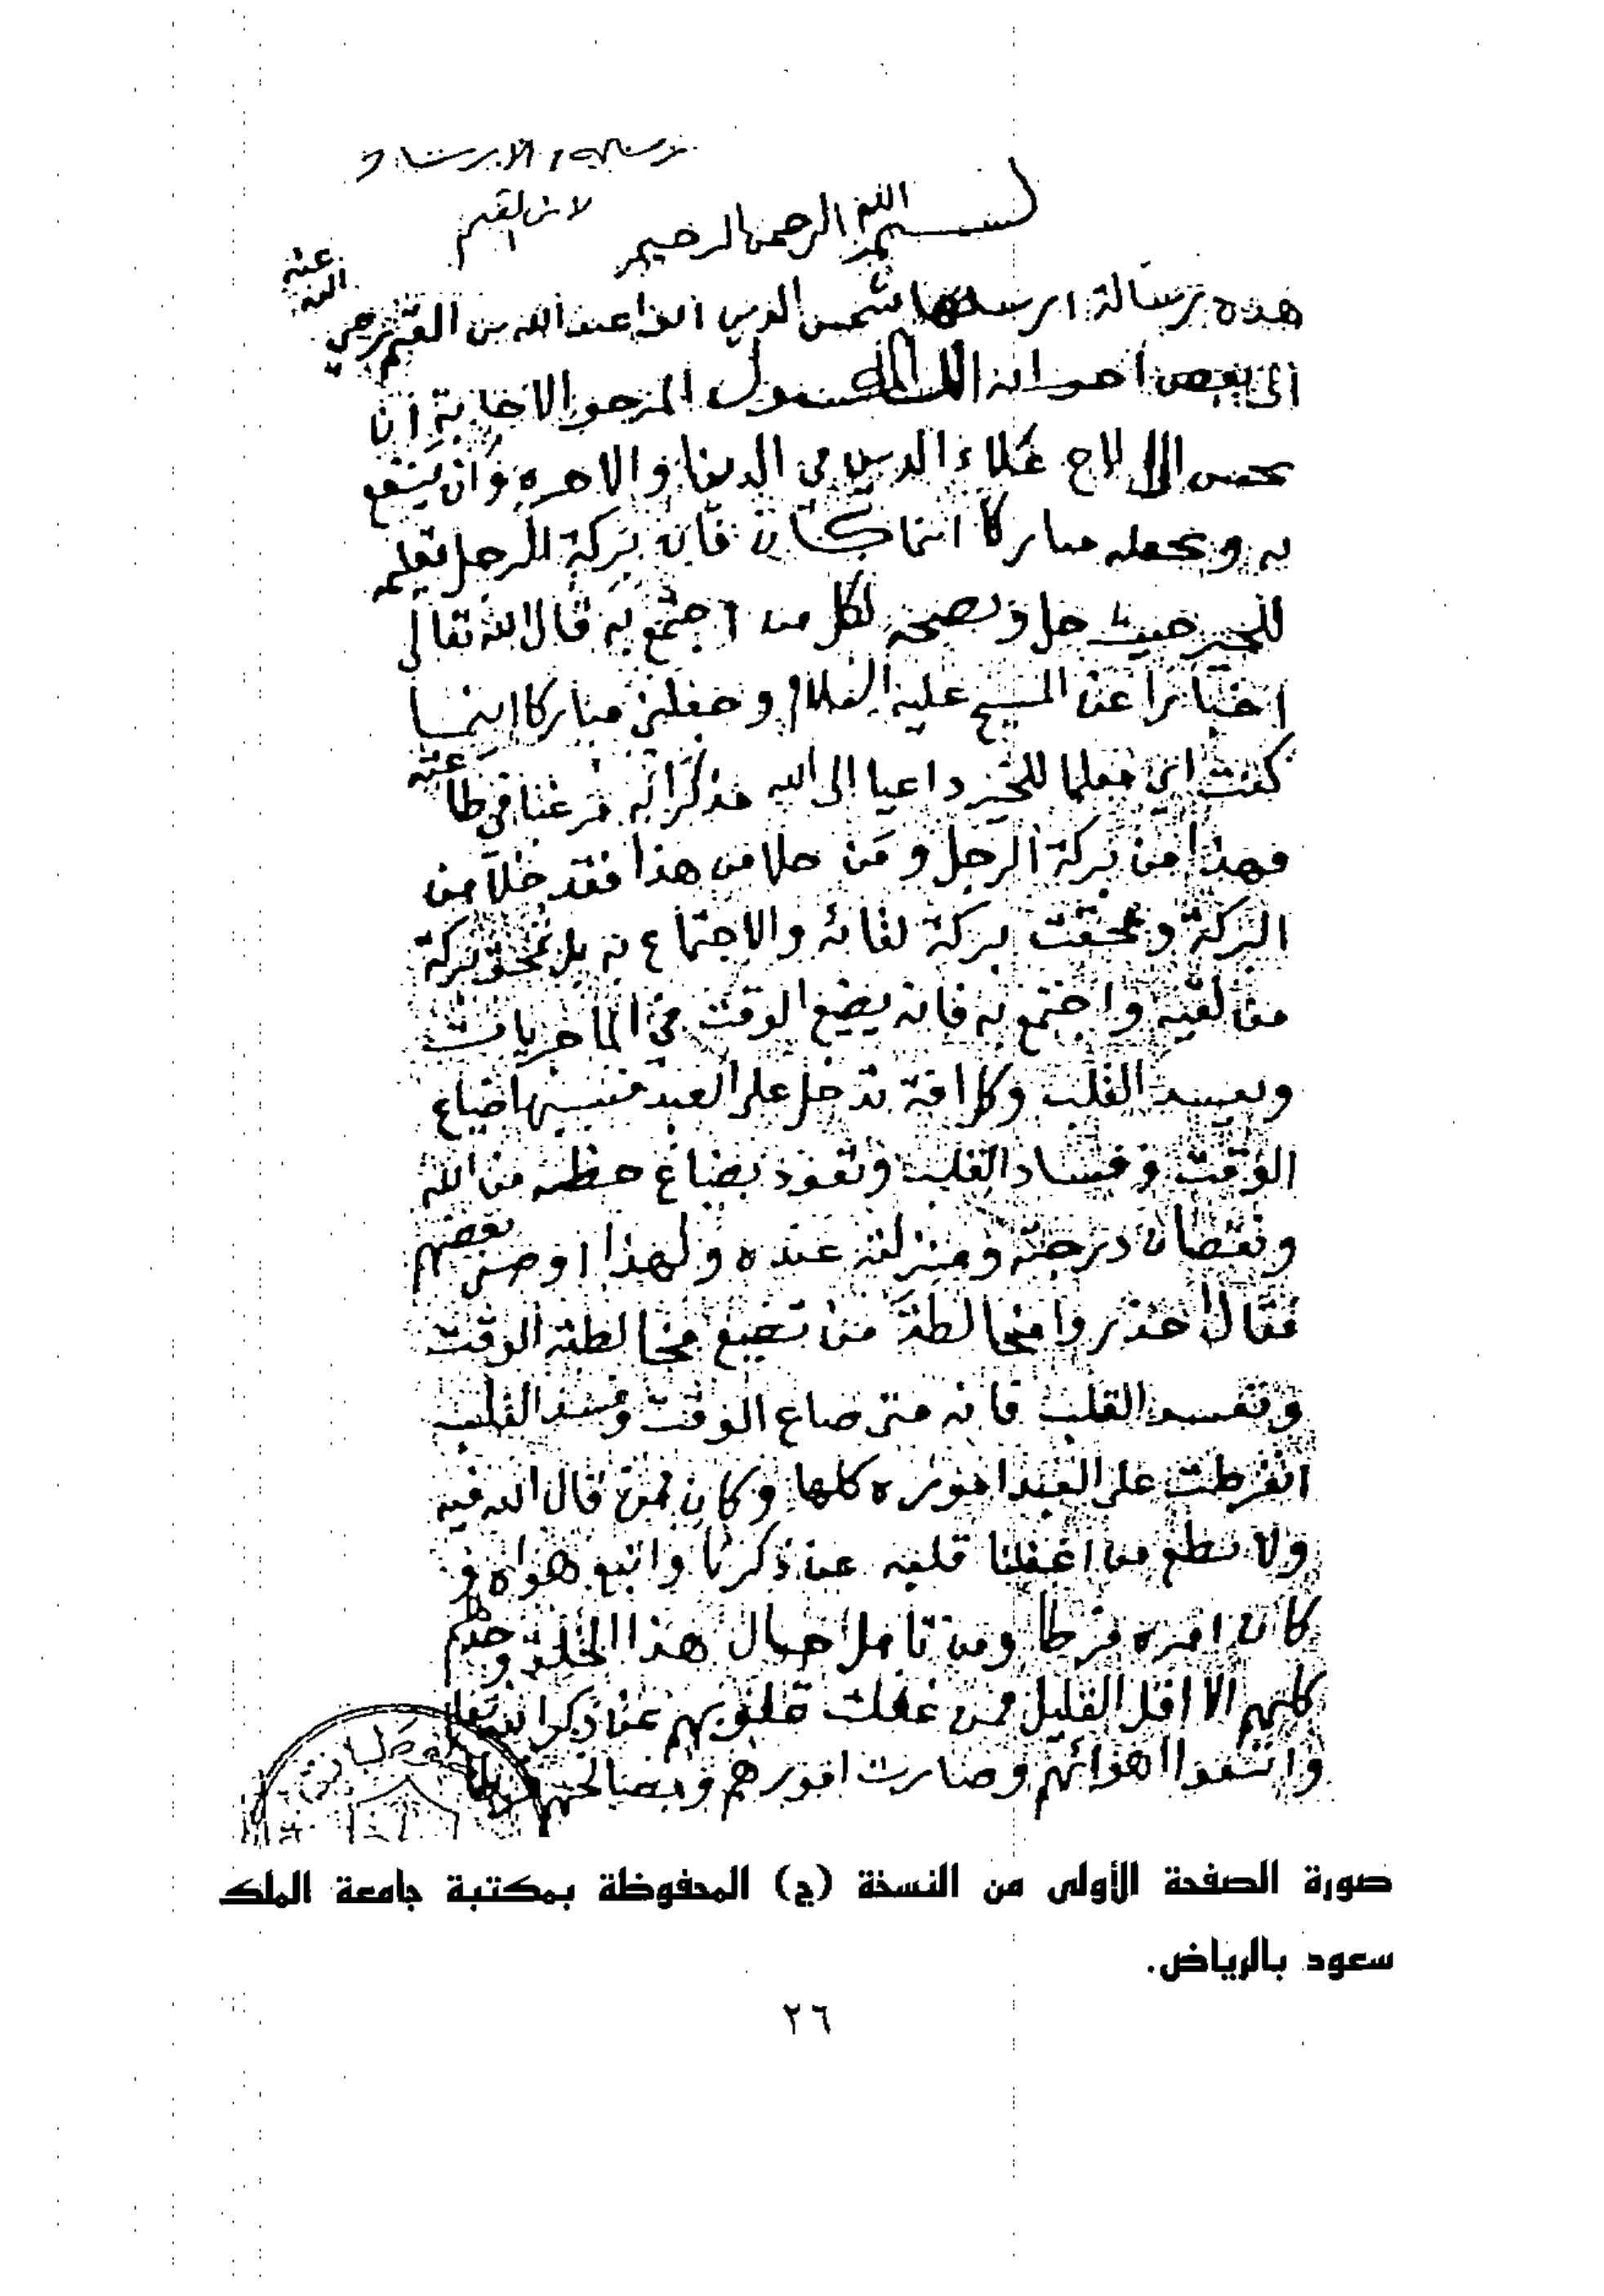 رسالة الارشاد
لابن القيم
بسم الله الرحمن الرحيم
هذه رسالة ارسلها شمس الدين ابو عبد الله بن القيم رضي الله عنه
الى بعض اخوانه الله المسول المرجو الاجابة ان
يحسن الى الاخ علاء الدين في الدنيا والاخره وان ينفع
به ويجعله مباركا اينما كان فان بركة الرجل تعليمه
للخير حيث حل ونصحه لكل من اجتمع به قال الله تعالى
اخبارا عن المسيح عليه السلام وجعلني مباركا اينما
كنت اي معلما للخير داعيا الى الله مذكرا به مرغبا في طاعته
فهذا من بركة الرجل ومن خلا من هذا فقد خلا من
البركة ومحقت بركة لقائه والاجتماع به بل تمحق بركة
من لقيه واجتمع به فانه يضيع الوقت في الماجريات
ويفسد القلب وكل افة تدخل على العبد فسببها ضياع
الوقت وفساد القلب وتعود بضياع حظه من الله
ونقصان درجته ومنزلته عنده ولهذا اوصى بعضهم
فقال احذروا مخالطة من تضيع مخالطته الوقت
وتفسد القلب فانه متى ضاع الوقت وفسد القلب
انفرطت على العبد اموره كلها وكان ممن قال الله فيه
ولا تطع من اغفلنا قلبه عن ذكرنا واتبع هواه و
كان امره فرطا ومن تامل احوال هذا الخلق وجدهم
كلهم الا اقل القليل ممن غفلت قلوبهم عن ذكر الله تعالى
واتبعوا اهوائهم وصارت امورهم ومصالحهم فرطا
صورة الصفحة الأولى من النسخة (ج) المحفوظة بمكتبة جامعة الملك
سعود بالرياض.
٢٦